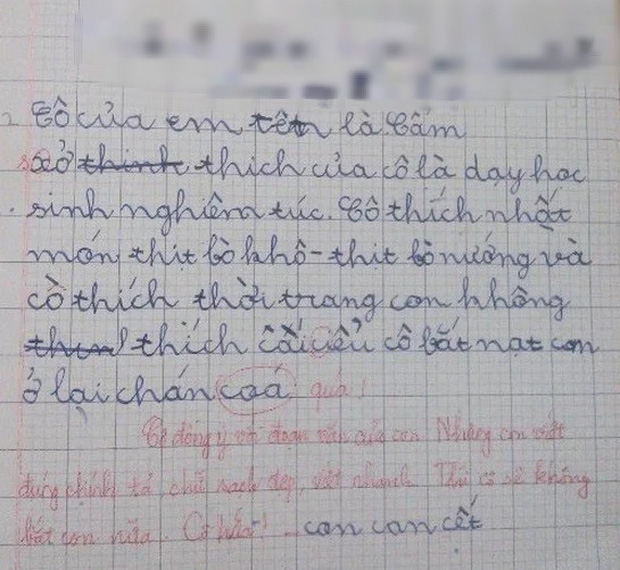 Cô của em tên là Cẩm
sở thinh thích của cô là dạy học
sinh nghiêm túc. Cô thích nhất
món thịt bò khô - thịt bò nướng và
cô thích thời trang con không
thích cái kiểu cô bắt nạt con
ở lại chán coá quá!
Cô đồng ý với đoạn văn của con Nhưng con viết
đúng chính tả, chữ sạch đẹp, viết nhanh Thì cô sẽ không
bắt con nữa. Cô hứa!
con can cết